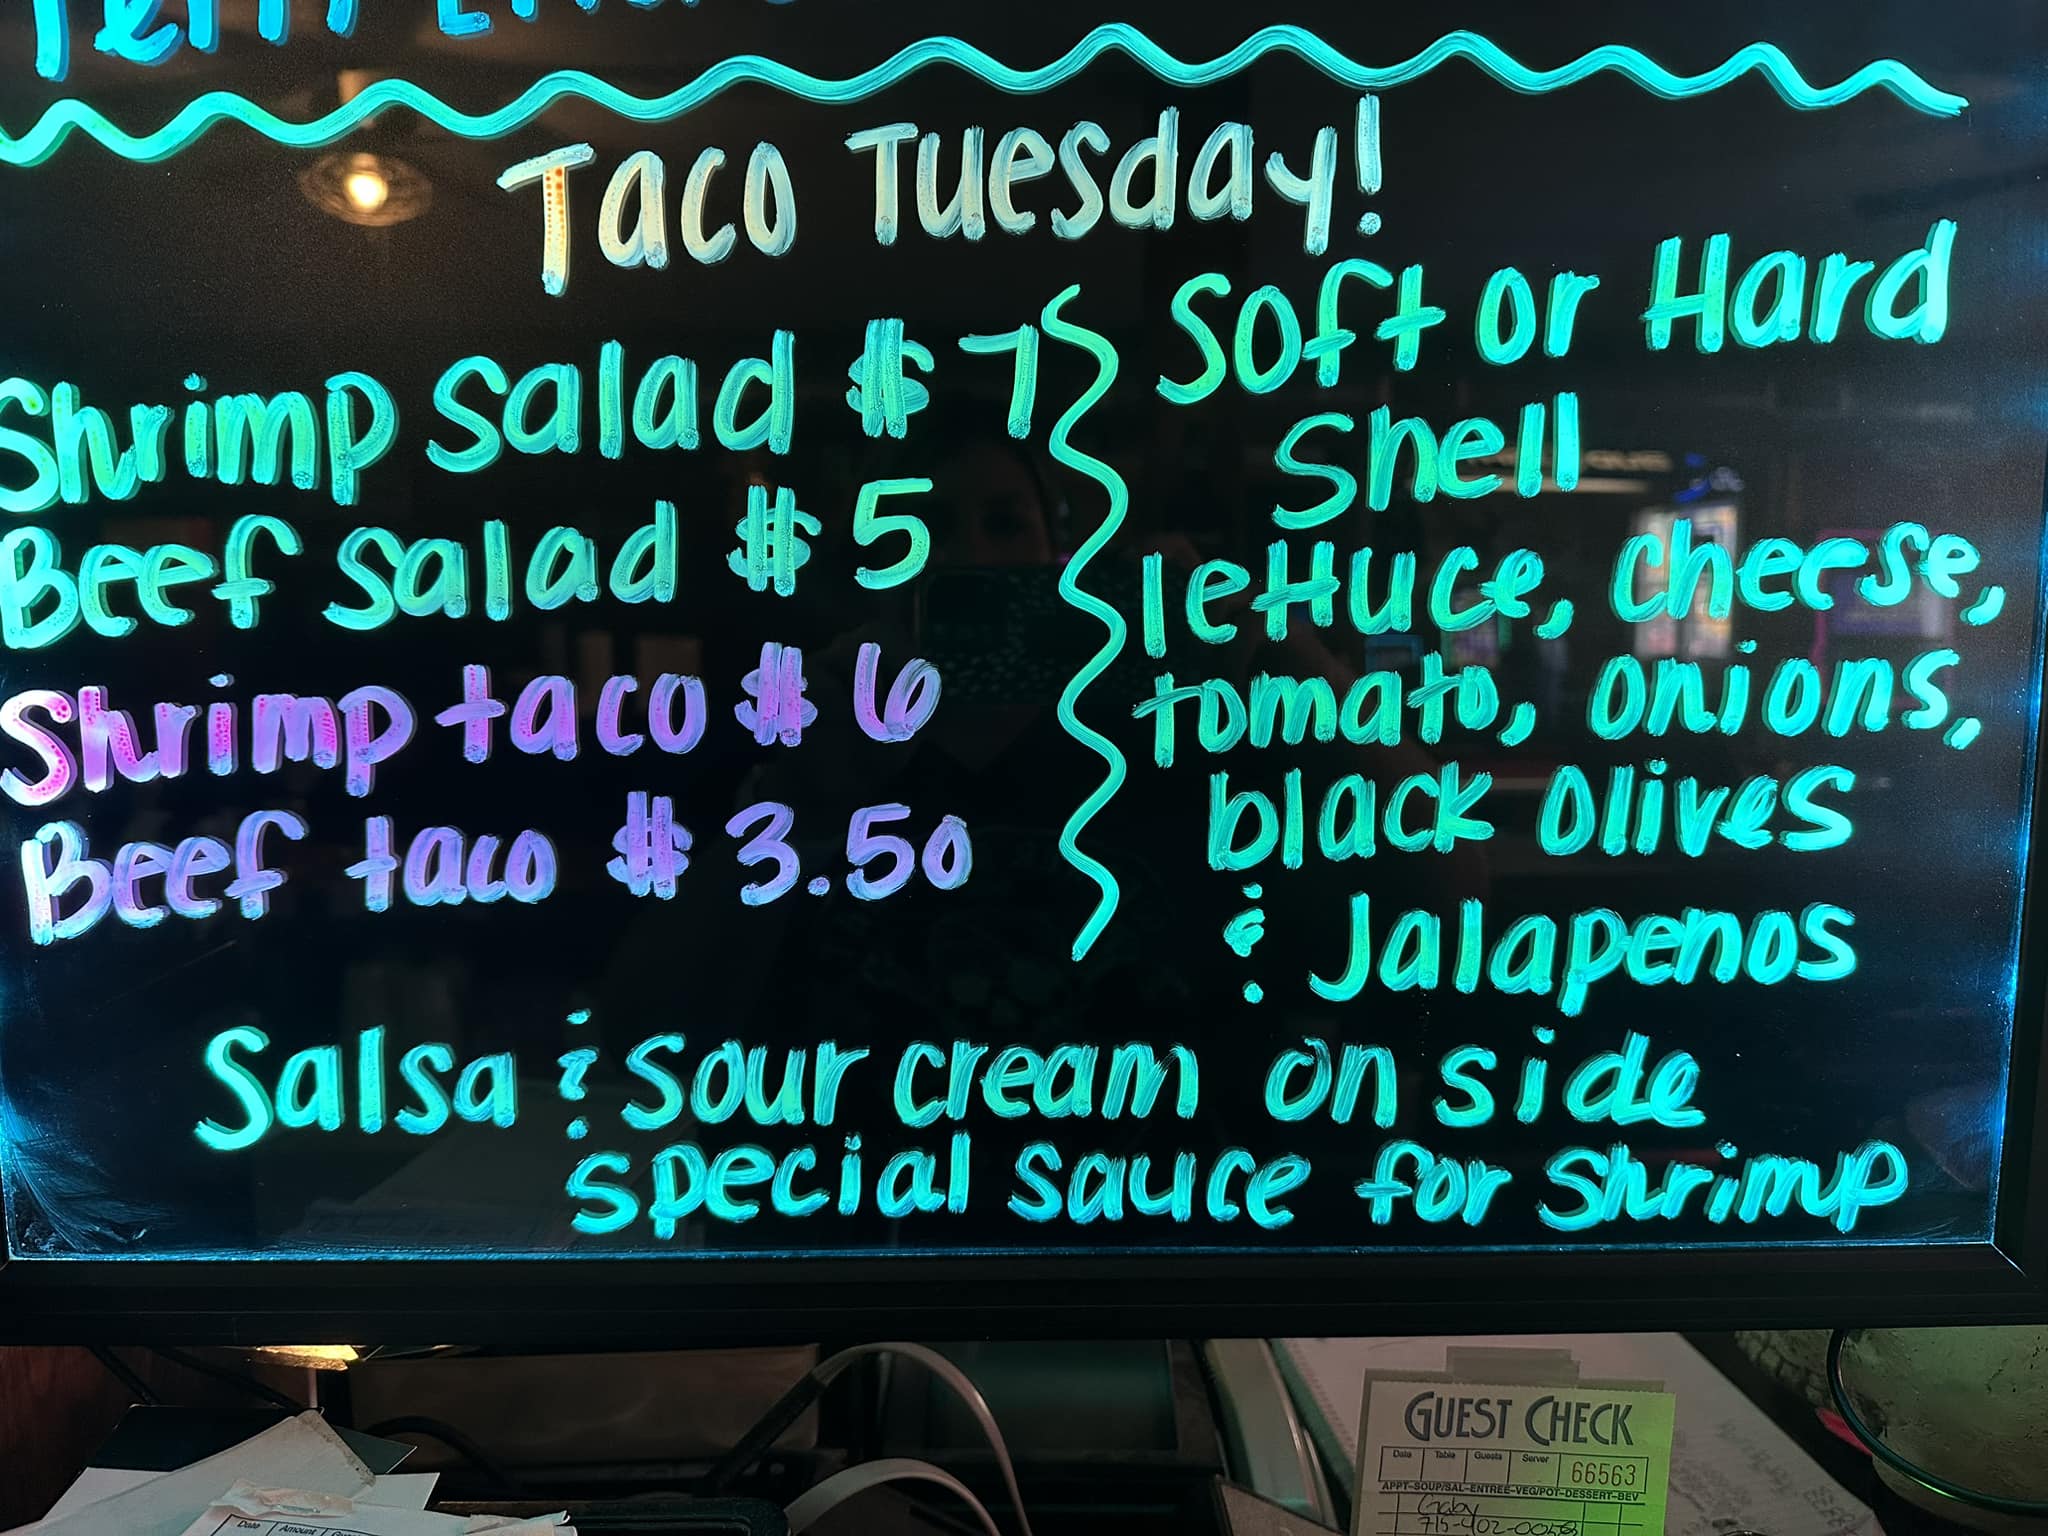 Taco Tuesday!
Shrimp salad $7
Beef salad $5
Shrimp taco $6
Beef taco $3.50
Soft or Hard
Shell
lettuce, cheese,
tomato, onions,
black olives
& Jalapenos
Salsa & sour cream on side
special sauce for shrimp
GUEST CHECK
Date Table Guests Server
66563
APPT-SOUP/SAL-ENTREE-VEG/POT-DESSERT-BEV
Gaby
Date Amount